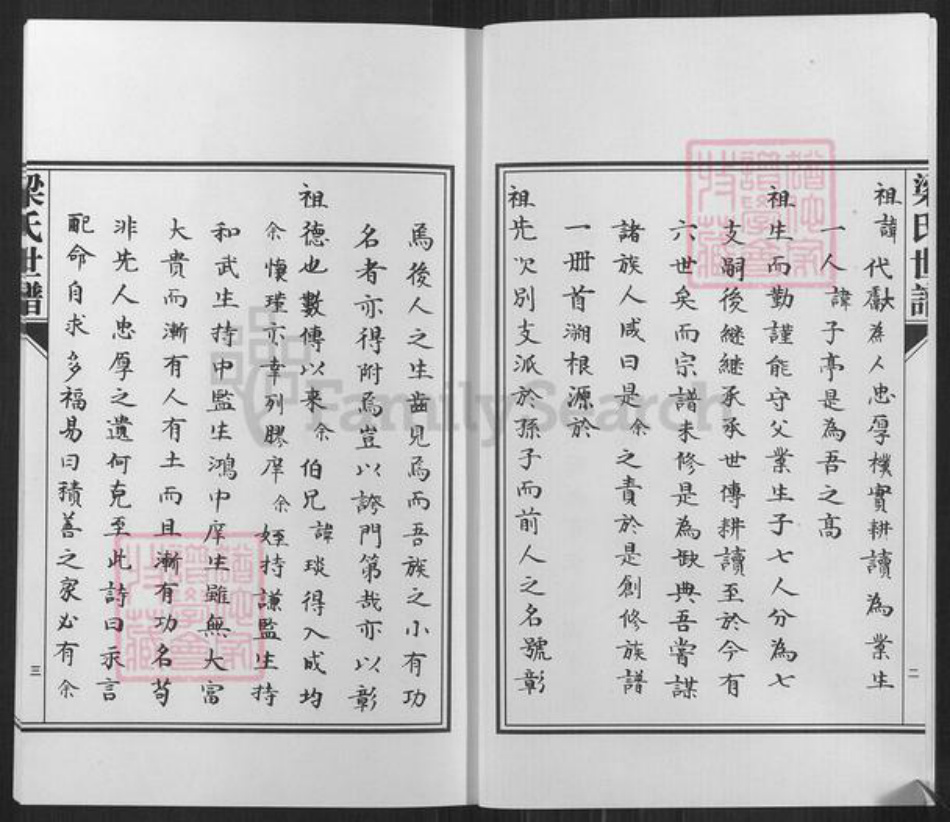 梁氏世譜
祖諱代獻為人忠厚樸實耕讀為業生
一人諱子亭是為吾之高
祖生而勤謹能守父業生子七人分為七
支嗣後繼繼承承世傳耕讀至於今有
六世矣而宗譜未修是為缺典吾嘗謀
諸族人咸曰是余之責於是創修族譜
一冊首溯根源於
祖先次別支派於孫子而前人之名號彰
二
焉後人之生齒見焉而吾族之小有功
名者亦得附焉豈以誇門第哉亦以彰
祖德也數傳以來余伯兄諱琰得入成均
余懷瑾亦幸列膠庠余姪持謙監生持
和武生持中監生鴻中庠生雖無大富
大貴而漸有人有土而且漸有功名苟
非先人忠厚之遺何克至此詩曰永言
配命自求多福易曰積善之家必有余
三
梁氏世譜
FamilySearch